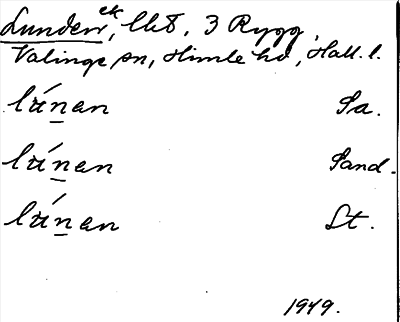 Lunden, ek
lht, 3 Rygg,
Valinge sn, Himle hd, Hall. l.
lú̱nan Sa.
lú̱nan Sand.
lú̱nan St.
1949.